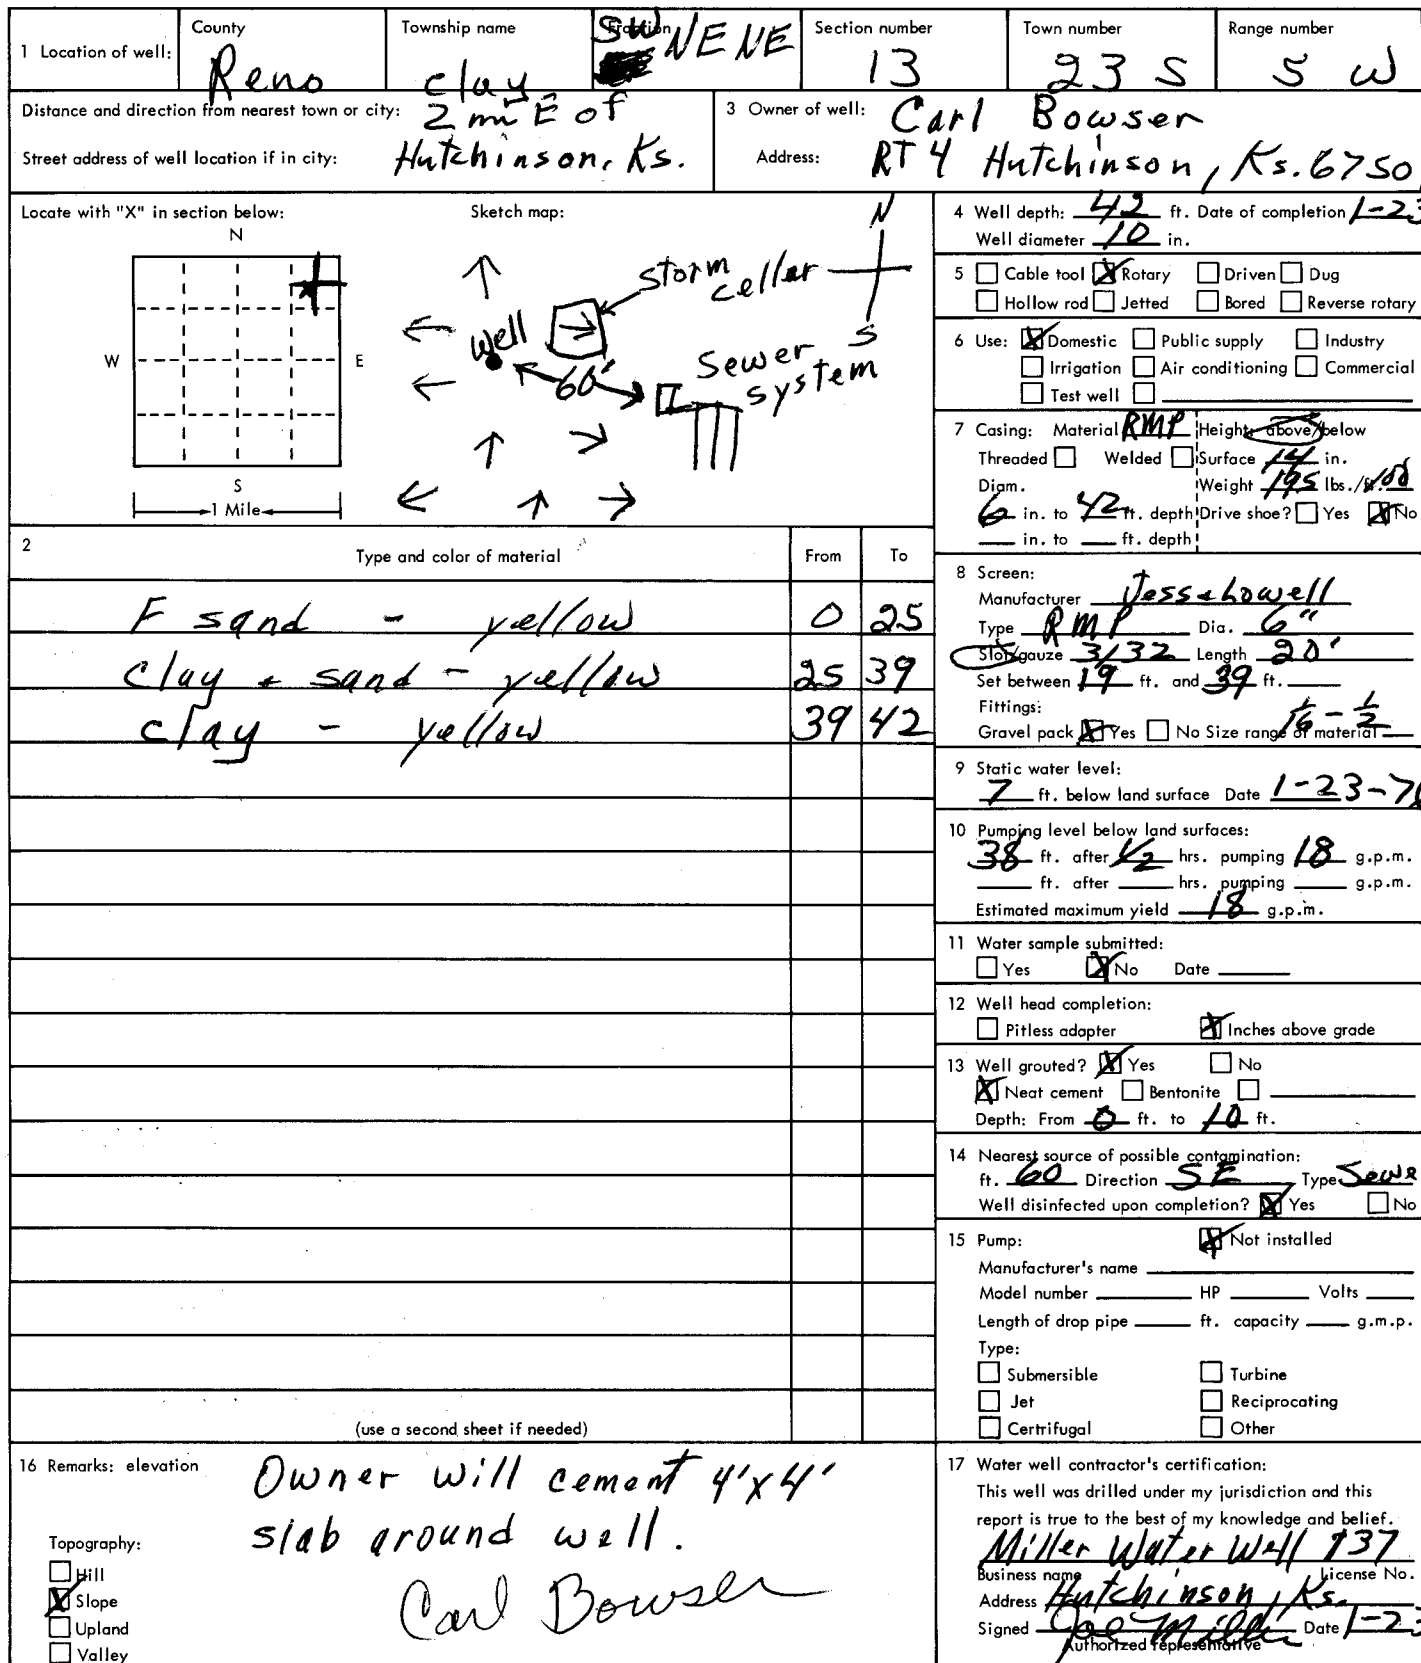 1 Location of well: County Reno Township name Clay Fraction SW NE NE Section number 13 Town number 23 S Range number 5 W
Distance and direction from nearest town or city: 2 mi E of
Street address of well location if in city: Hutchinson, Ks.
3 Owner of well: Carl Bowser
Address: RT 4 Hutchinson, Ks. 6750
Locate with "X" in section below:
N
W E
S
1 Mile
Sketch map:
N
storm
celler
well
60'
Sewer
system
S
4 Well depth: 42 ft. Date of completion 1-23
Well diameter 10 in.
5 Cable tool X Rotary Driven Dug
Hollow rod Jetted Bored Reverse rotary
6 Use: X Domestic Public supply Industry
Irrigation Air conditioning Commercial
Test well
7 Casing: Material RMP Height: above/below
Threaded Welded Surface 14 in.
Diam. Weight 195 lbs./ft. 100
6 in. to 42 ft. depth Drive shoe? Yes X No
in. to ft. depth
2 Type and color of material From To
F sand - yellow 0 25
clay + sand - yellow 25 39
clay - yellow 39 42
(use a second sheet if needed)
8 Screen:
Manufacturer Jess & Lowell
Type RMP Dia. 6"
Slot/gauze 3/32 Length 20'
Set between 19 ft. and 39 ft.
Fittings:
Gravel pack X Yes No Size range of material 1/16 - 1/2
9 Static water level:
7 ft. below land surface Date 1-23-76
10 Pumping level below land surfaces:
38 ft. after 1/2 hrs. pumping 18 g.p.m.
ft. after hrs. pumping g.p.m.
Estimated maximum yield 18 g.p.m.
11 Water sample submitted:
Yes X No Date
12 Well head completion:
Pitless adapter X Inches above grade
13 Well grouted? X Yes No
X Neat cement Bentonite
Depth: From 0 ft. to 10 ft.
14 Nearest source of possible contamination:
ft. 60 Direction SE Type Sewe
Well disinfected upon completion? X Yes No
15 Pump: X Not installed
Manufacturer's name
Model number HP Volts
Length of drop pipe ft. capacity g.m.p.
Type:
Submersible Turbine
Jet Reciprocating
Certrifugal Other
16 Remarks: elevation
Owner will cement 4'x4'
slab around well.
Carl Bowser
Topography:
Hill
X Slope
Upland
Valley
17 Water well contractor's certification:
This well was drilled under my jurisdiction and this
report is true to the best of my knowledge and belief.
Miller Water Well 137
Business name License No.
Address Hutchinson, Ks.
Signed Joe Miller Date 1-23
Authorized representative